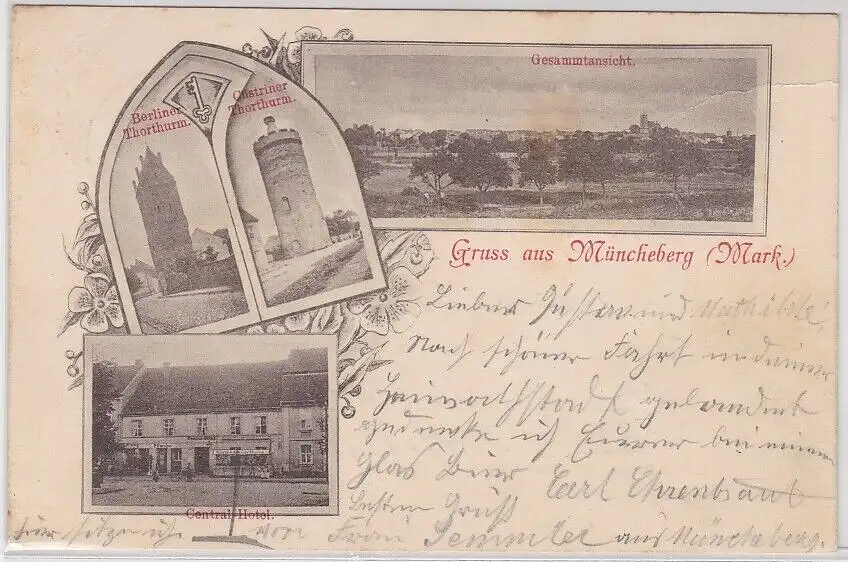 Berliner
Thorthurm.
Cüstriner
Thorthurm.
Gesammtansicht.
Gruss aus Müncheberg (Mark.)
Lieber Gustav und Mathilde!
Nach schöner Fahrt in deiner
Heimathstadt gelandet
gedenke ich Eurer bei einem
Glas Bier Carl Ehrenbrandt
Besten Gruß
Central-Hotel.
hier sitze ich von Frau Semmler aus Müncheberg.